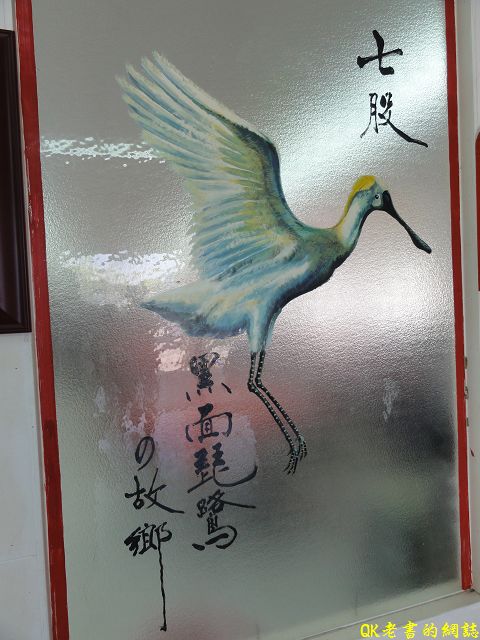 七股
黑面琵鷺
の故鄉
QK老書的網誌